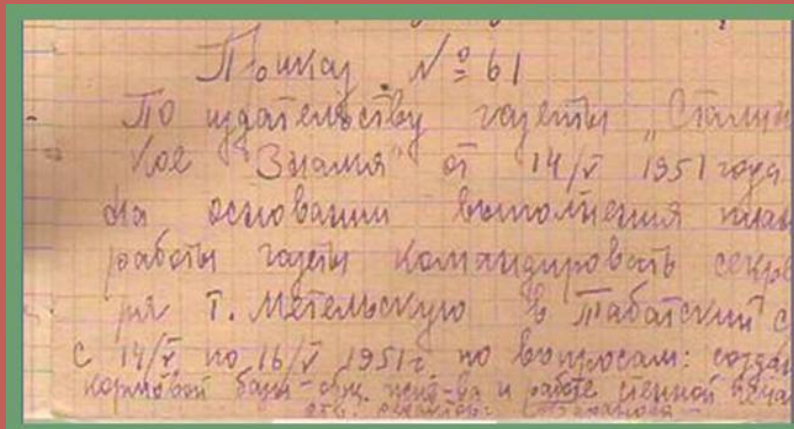 Приказ № 61
По издательству газеты „Сталин
кое "Знамя" от 14/V 1951 года
На основании выполнения план
работы газеты командировать секре
ря т. Метельскую в Табатский с
с 14/V по 16/V 1951г. по вопросам: созда
кормовой базы - общ. жив-ва и работе стенной печа
отв. редактор: